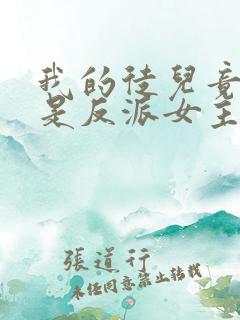 我的徒兒竟
是反派女主
張道行
未經同意禁止轉載